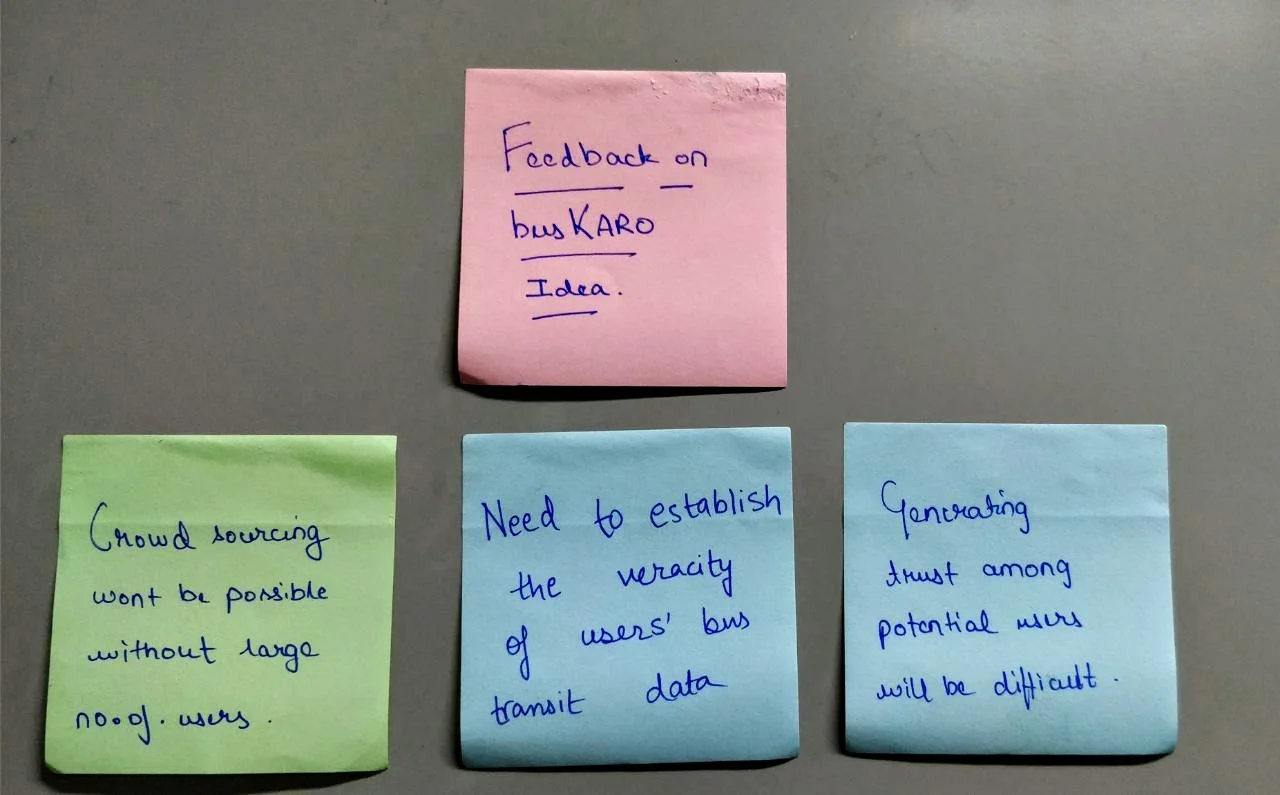 Feedback on
busKARO
Idea.
Crowd sourcing
wont be possible
without large
no.of. users.
Need to establish
the veracity
of users' bus
transit data
Generating
trust among
potential users
will be difficult.